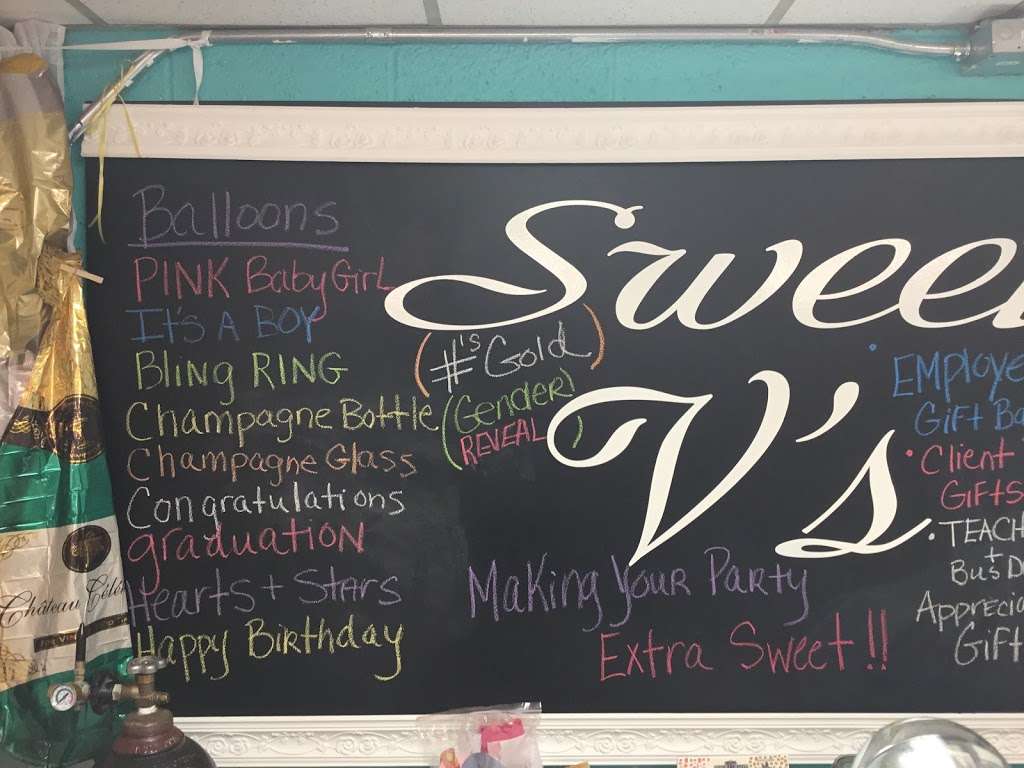 Balloons
PINK Baby Girl
It's A BOY
Bling RING
Champagne Bottle
Champagne Glass
Congratulations
graduation
Hearts + Stars
Happy Birthday
(#'s Gold)
(Gender
REVEAL)
Swee
V's
Making Your Party
Extra Sweet!!
• EMPloye
Gift Ba
• Client
GiftS
• TEACH
+
Bus D
Apprecia
Gift
Château